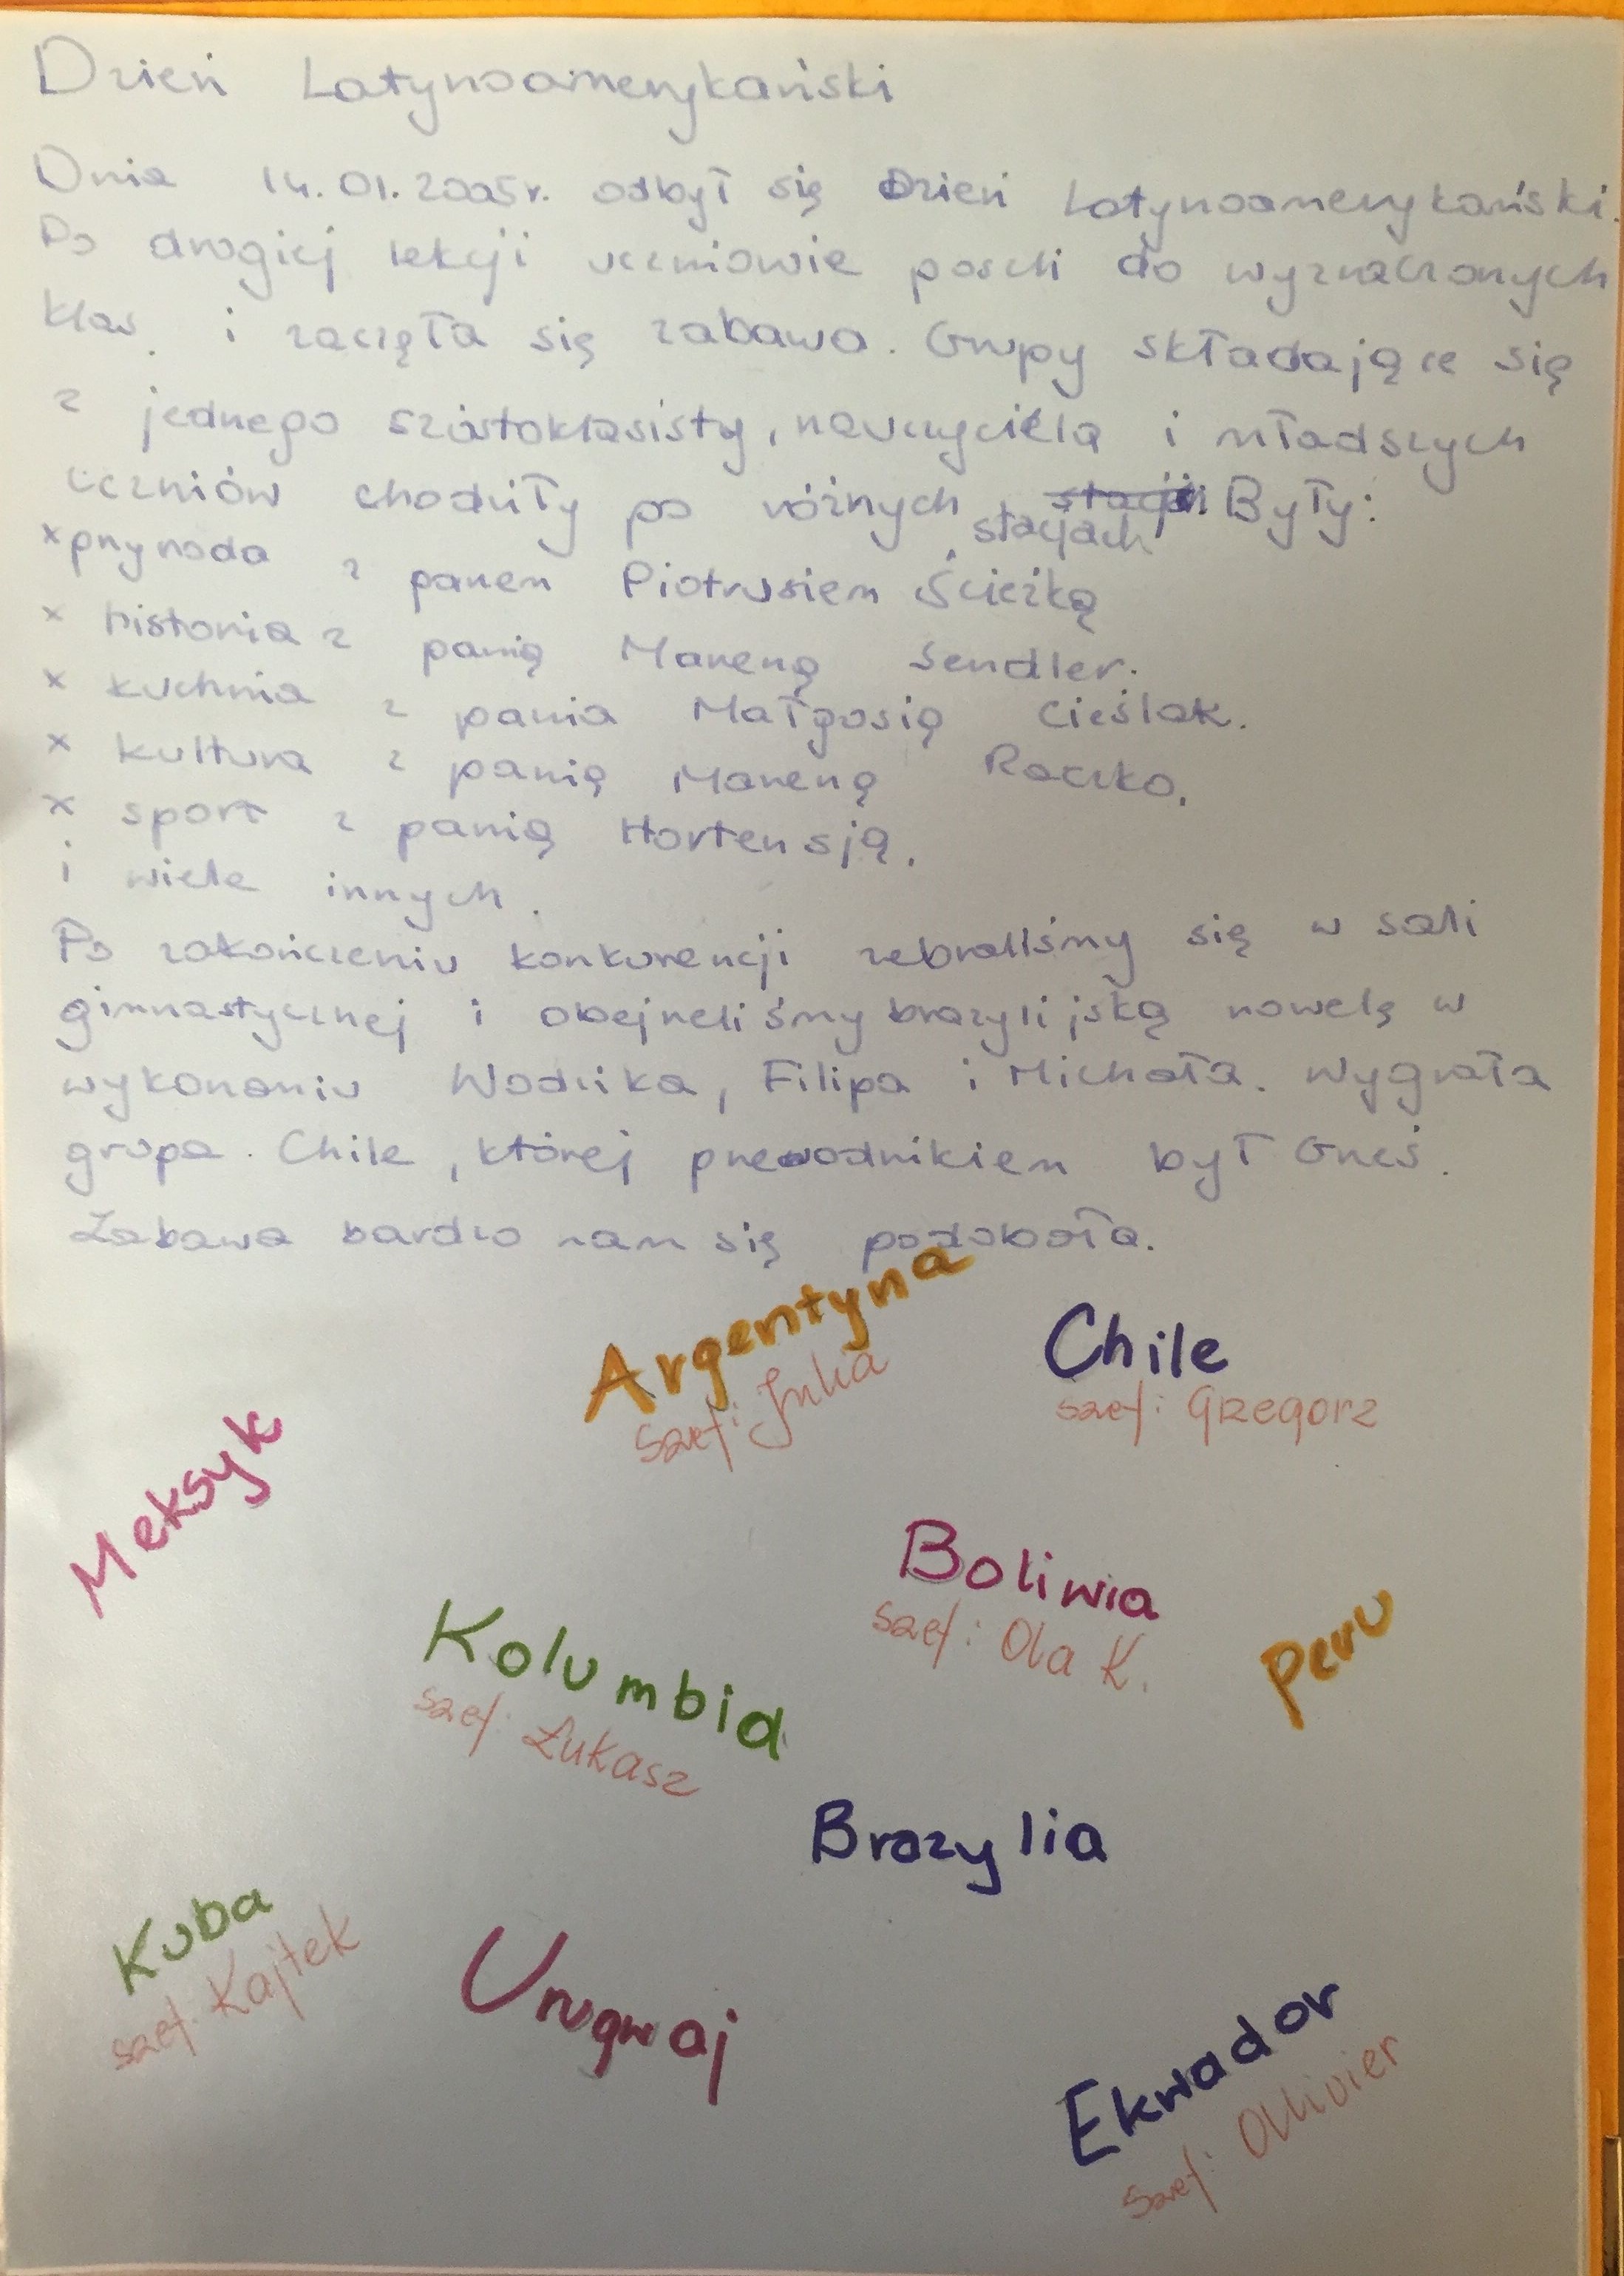 Dzień Latynoamerykański
Dnia 14.01.2005r. odbył się Dzień Latynoamerykański.
Po drugiej lekcji uczniowie poszli do wyznaczonych
klas. i zaczęła się zabawa. Grupy składające się
z jednego szóstoklasisty, nauczyciela i młodszych
uczniów chodziły po różnych stacjach. Były:
x przyroda z panem Piotrusiem Ścieżką
x historia z panią Marzeną Sendler.
x kuchnia z pania Małgosią Cieślak.
x kultura z panią Marzeną Raczko.
x sport z panią Hortensją.
i wiele innych.
Po zakończeniu konkurencji zebraliśmy się w sali
gimnastycznej i obejrzeliśmy brazylijską nowelę w
wykonaniu Wodzika, Filipa i Michała. Wygrała
grupa Chile, której przewodnikiem był Grześ.
Zabawa bardzo nam się podobała.
Argentyna
szef: Julia
Chile
szef: Grzegorz
Meksyk
Boliwia
szef: Ola K.
Peru
Kolumbia
szef: Łukasz
Brazylia
Kuba
szef: Kajtek
Urugwaj
Ekwador
szef: Ollivier